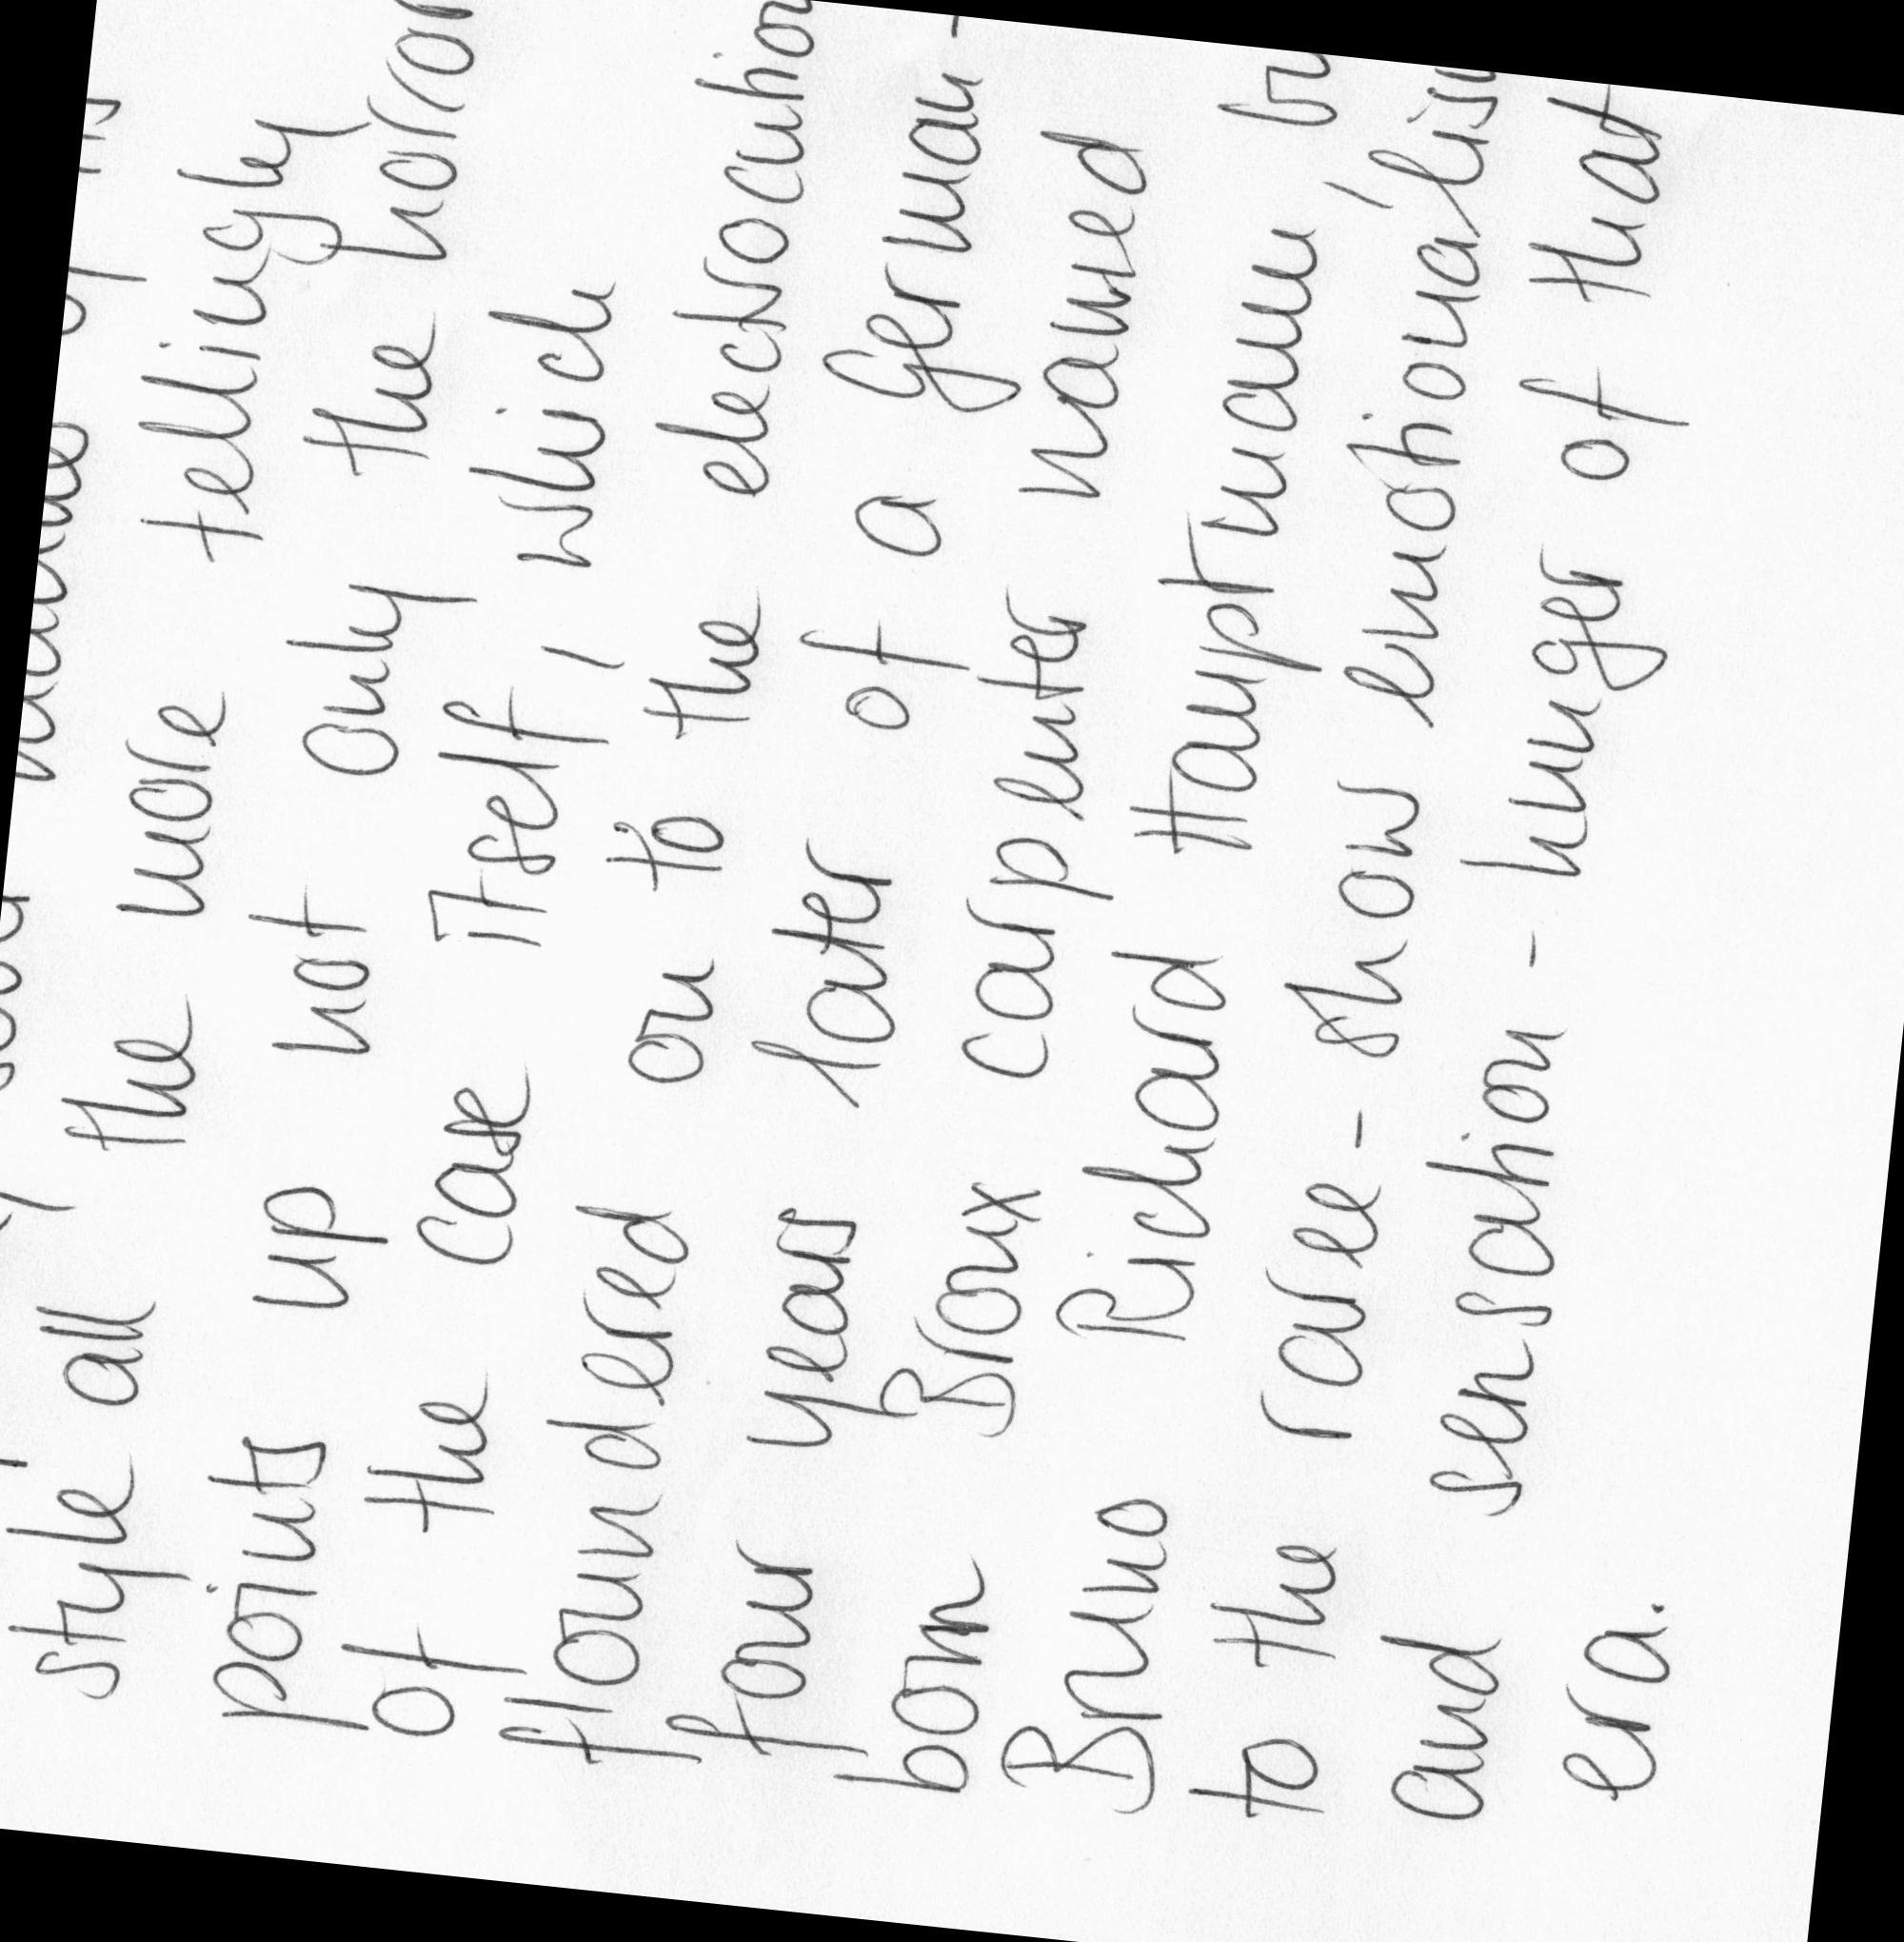 style all the more tellingly
points up not only the horror
of the case itself, which
floundered on to the electrocution
four years later of a German-
born Bronx carpenter named
Bruno Richard Hauptmann, bu
to the raree-show emotionalism
and sensation-hunger of that
era.